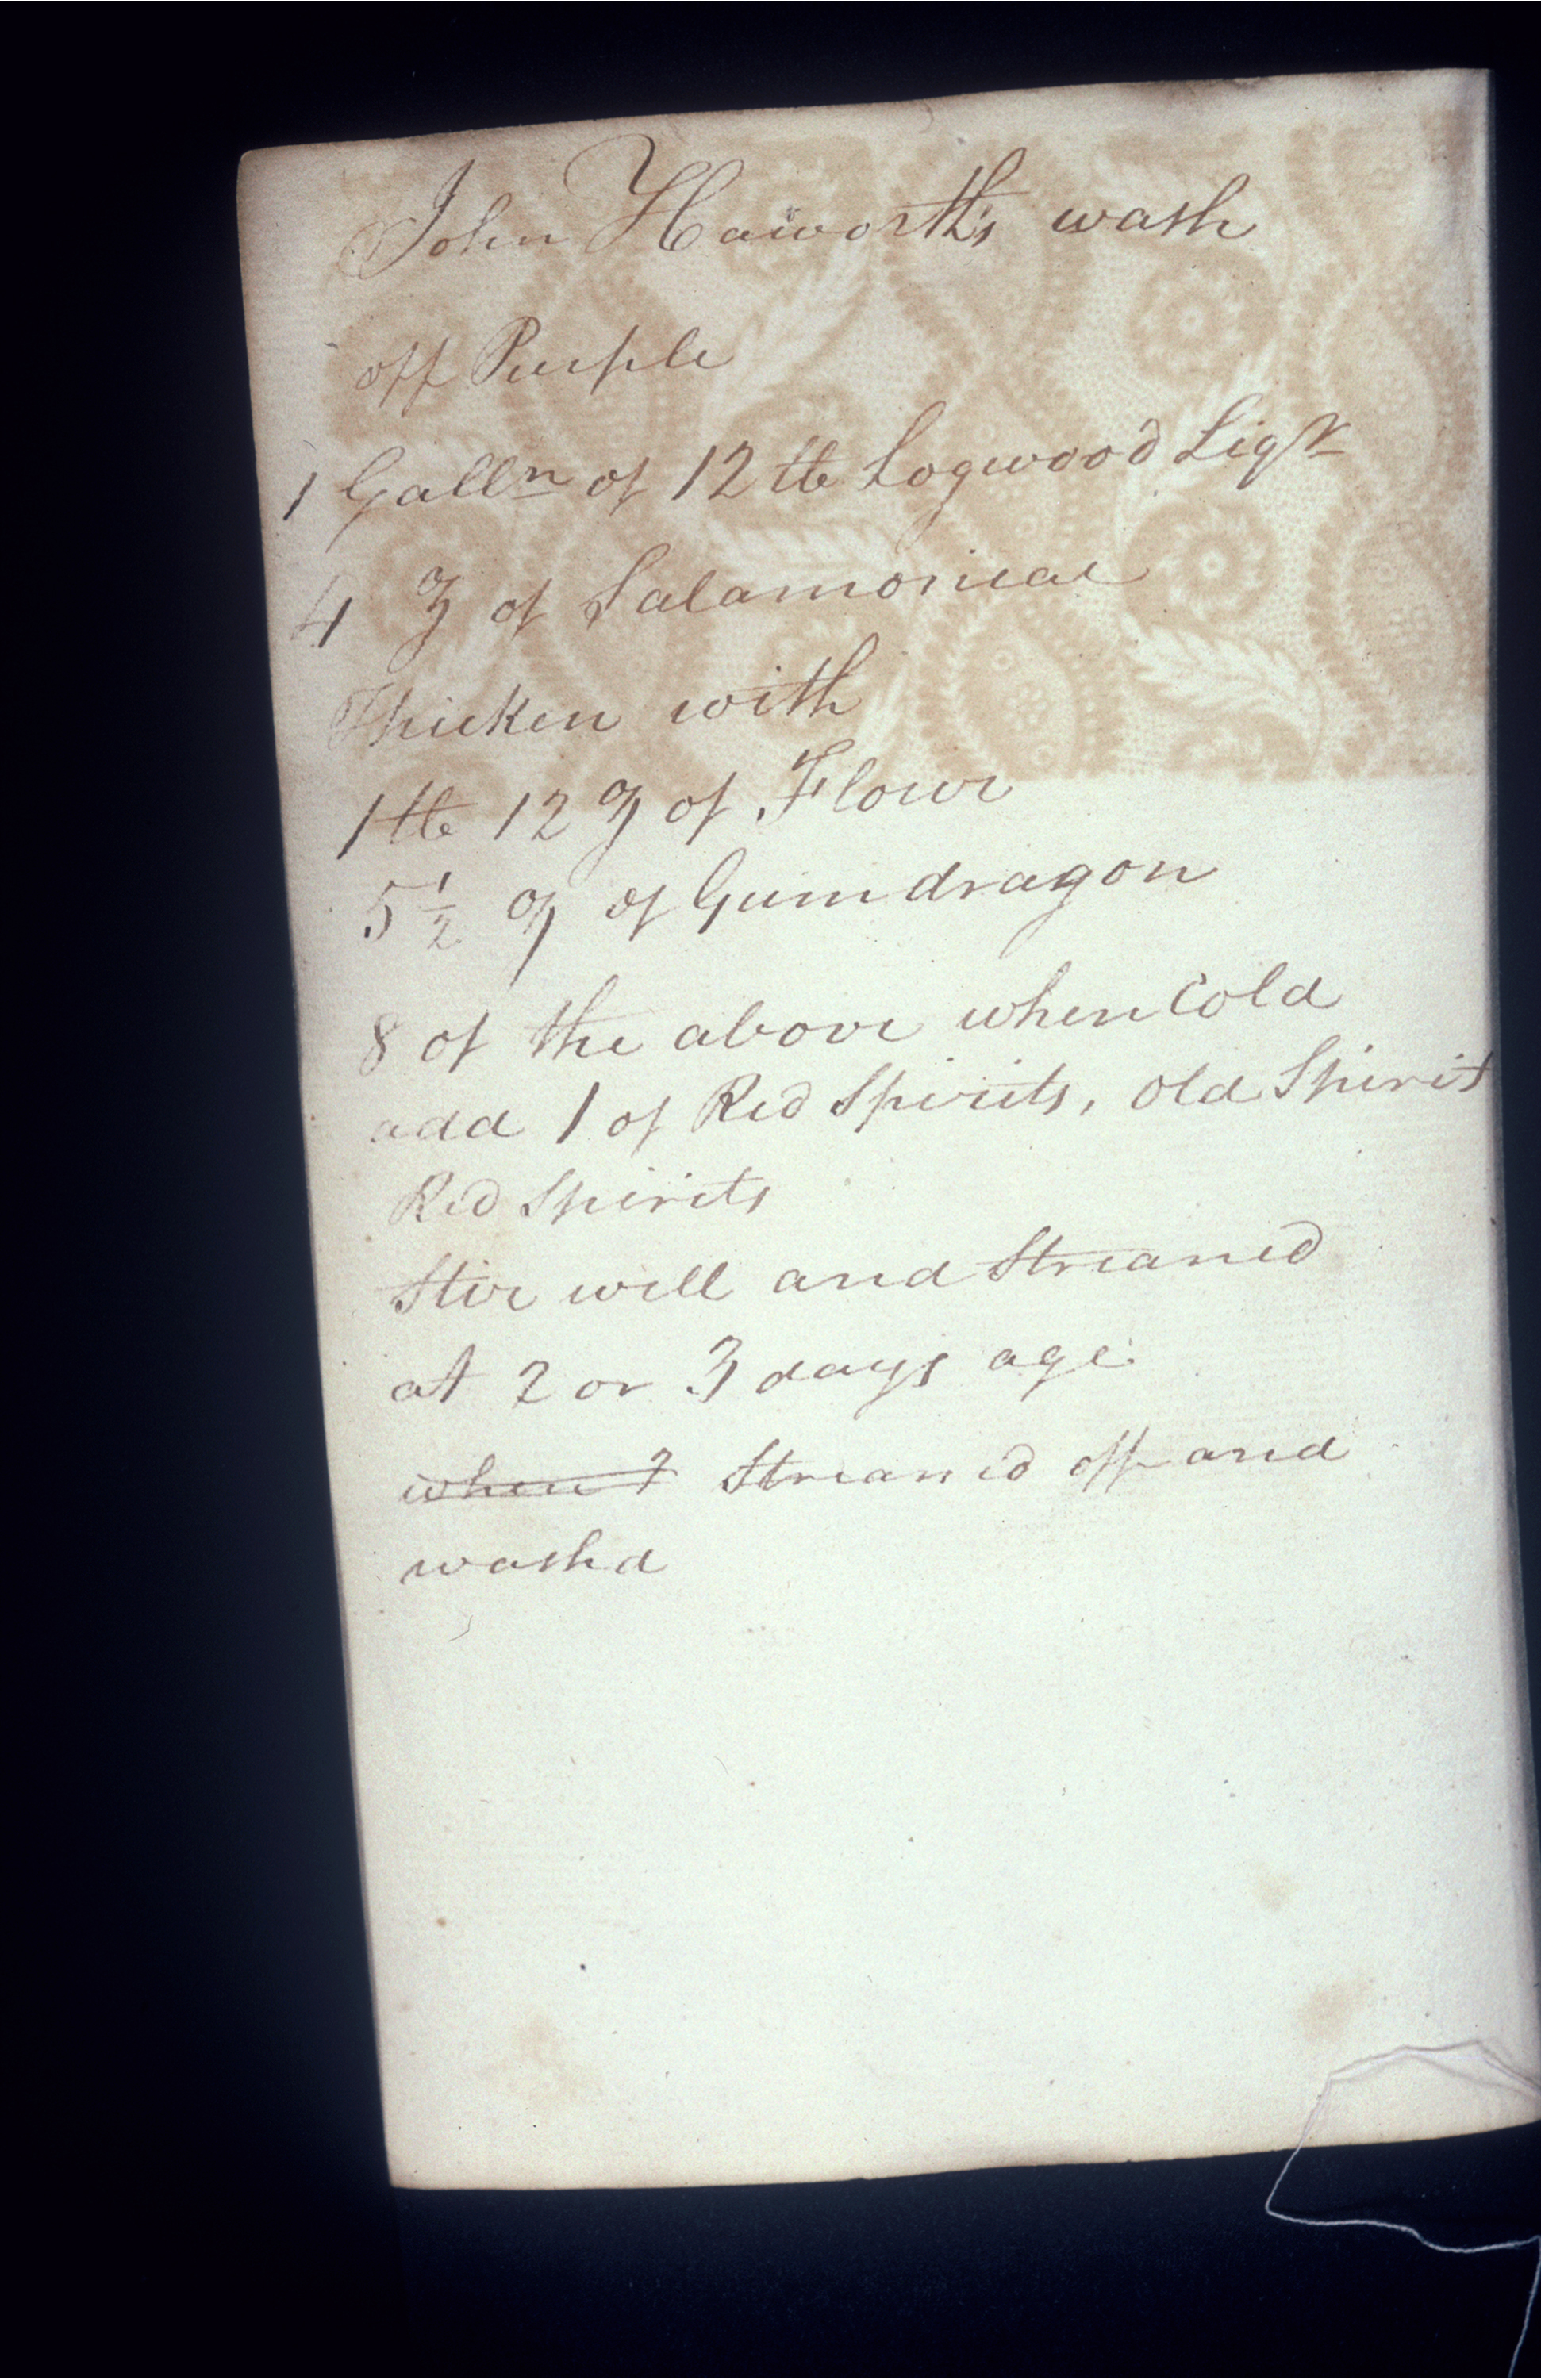 John Haworth's wash
off Purple
1 Galln of 12 ℔ Logwood Liqr
4 ℥ of Salamoniac
Thicken with
1 ℔ 12 ℥ of Flour
5 1/2 ℥ of Gum dragon
8 of the above when Cold
add 1 of Red Spirits, old Spirit
Red Spirits
Stir well and Streamed
at 2 or 3 days age
when 7 Streamed off and
washd